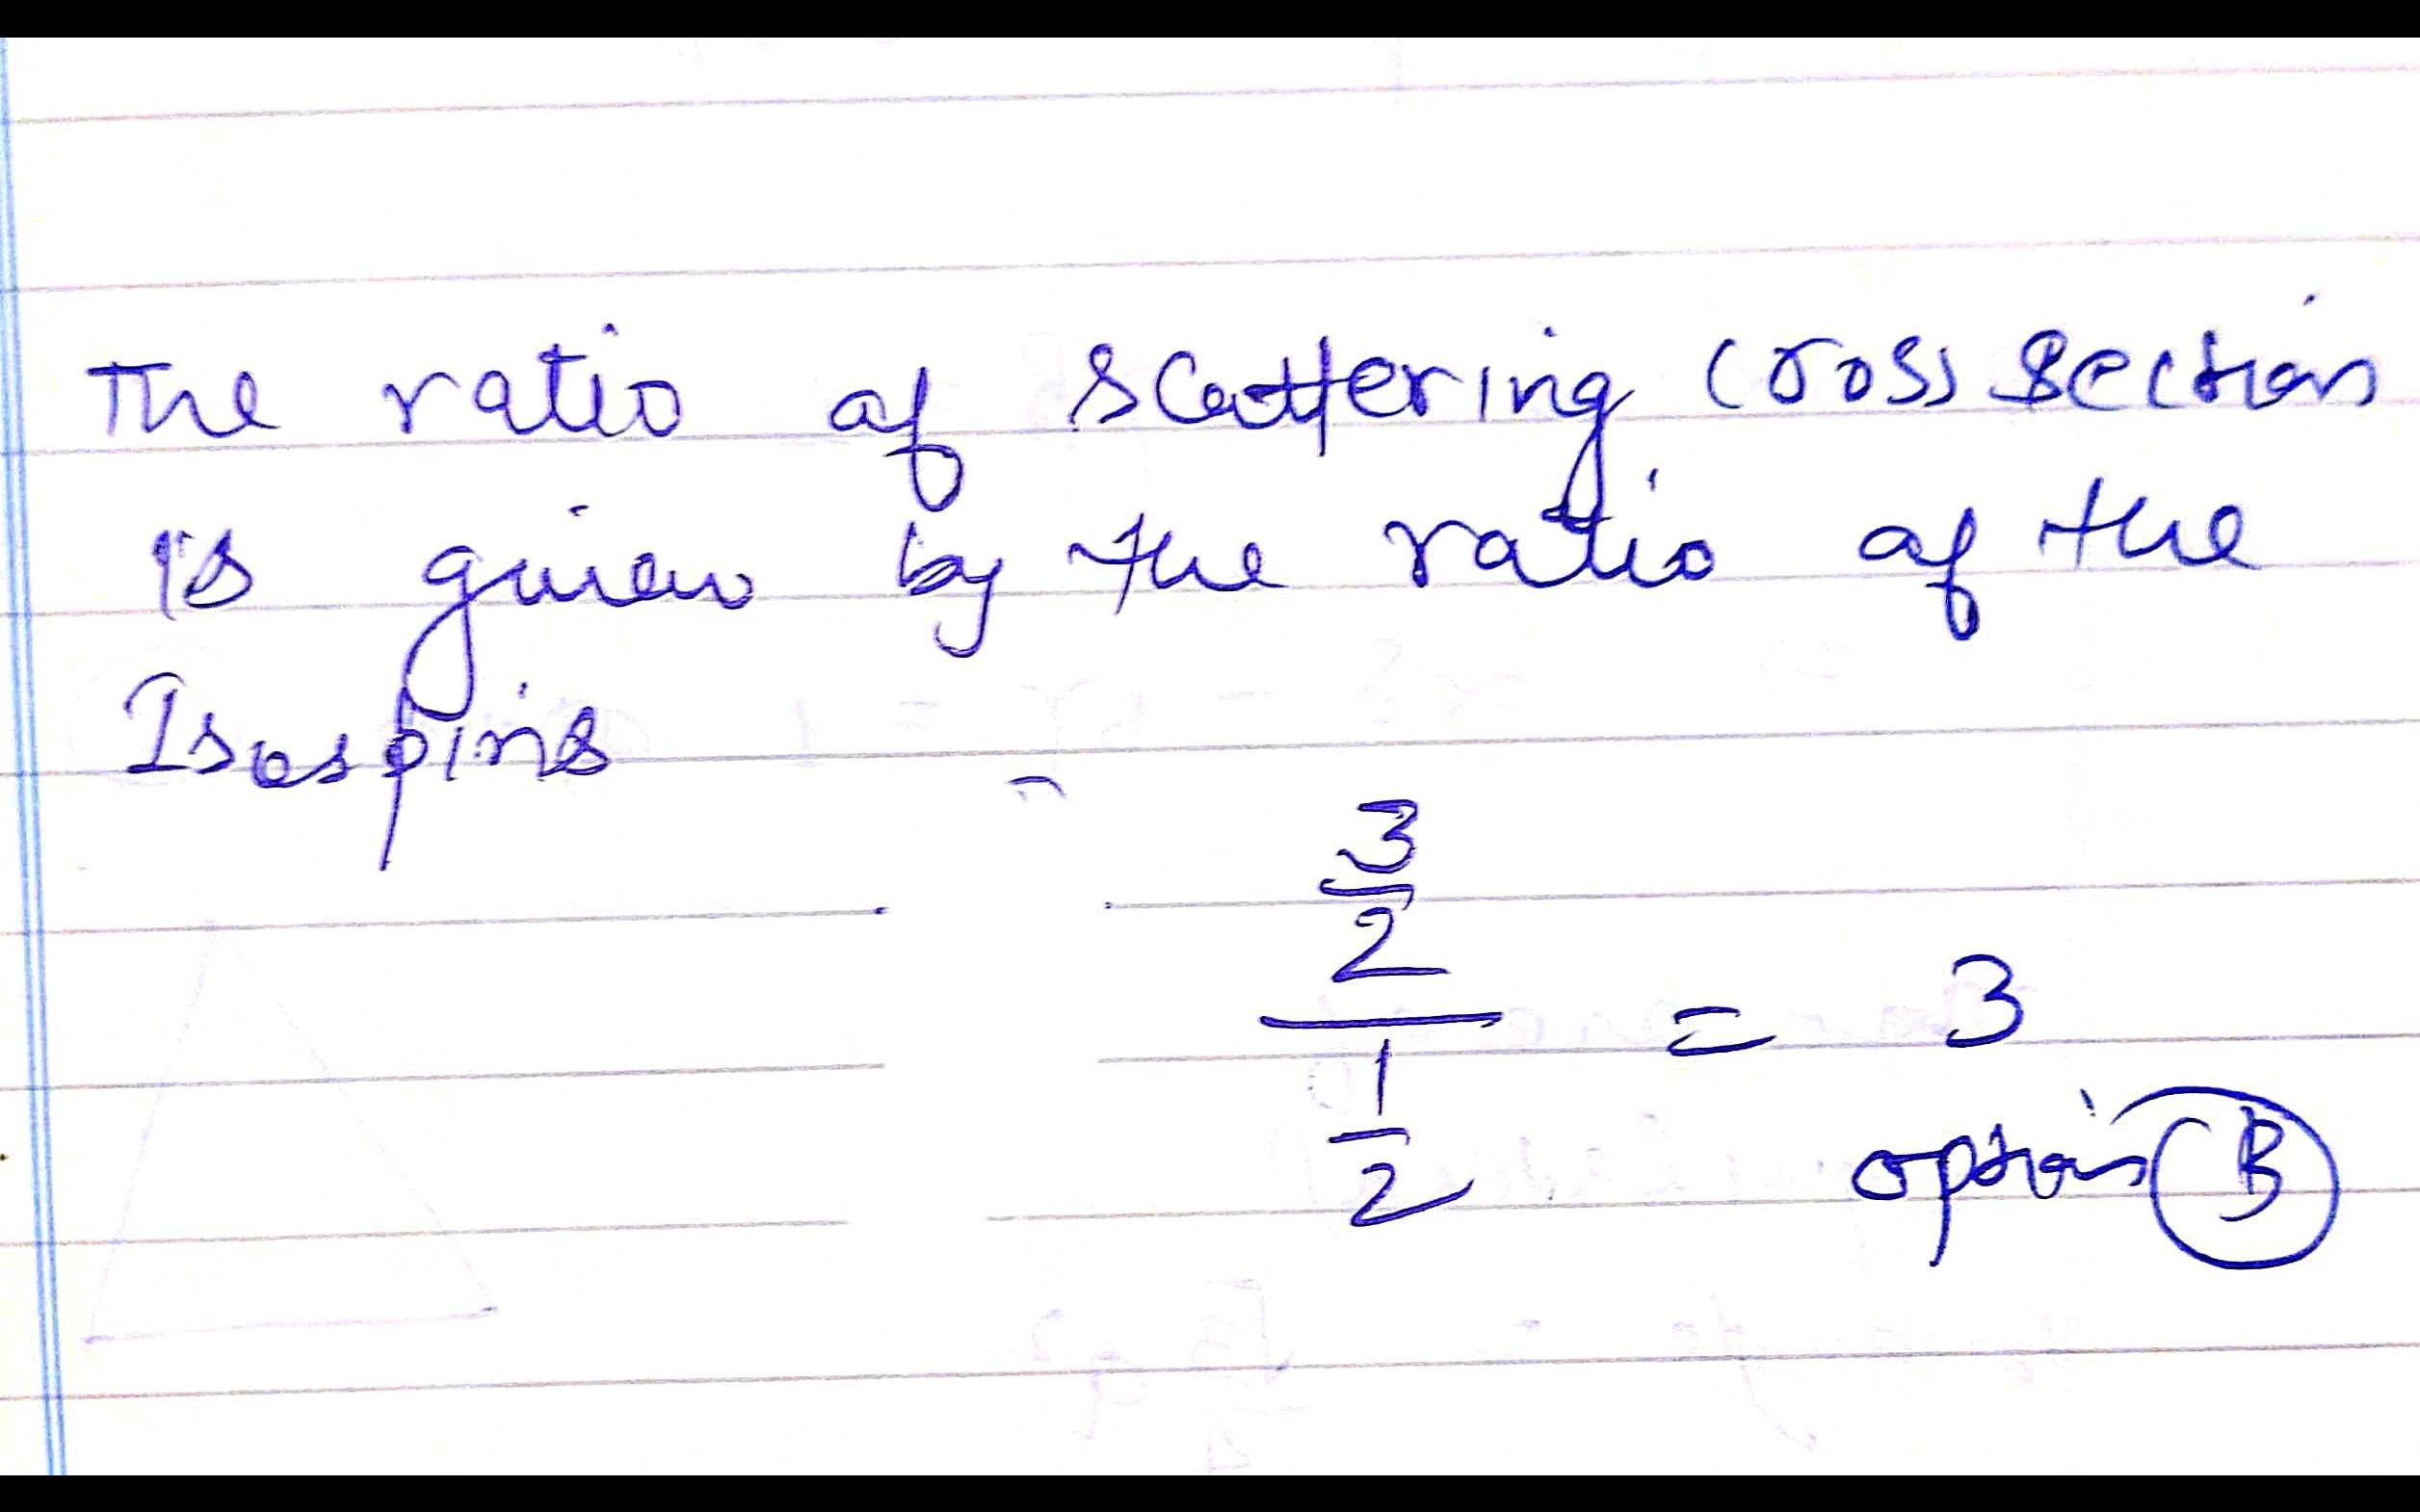 The ratio of scattering cross section
is given by the ratio of the
Isospins
3/2
/
1/2
= 3
option B